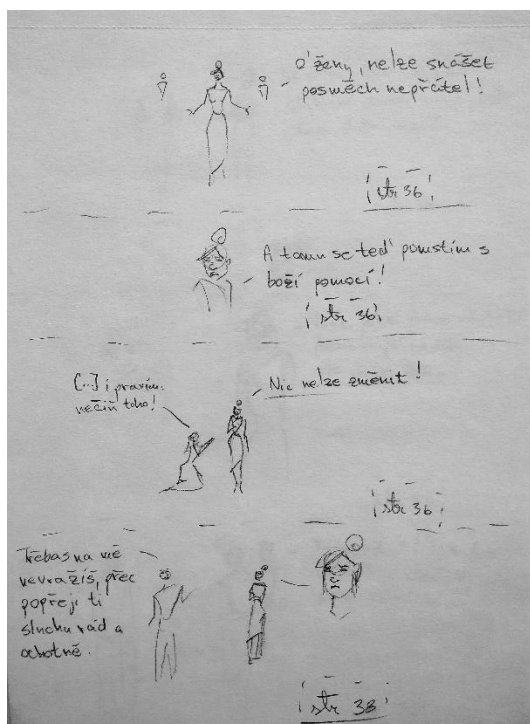 O' ženy, nelze snášet
posměch nepřátel!
str 36
A tomu se teď pomstím s
boží pomocí!
str 36
[...] i pravím:
nečiň toho!
Nic nelze změnit!
str 36
Třebas na mě
nevrazíš, přec
popřeji ti
sluchu rád a
ochotně.
str 38